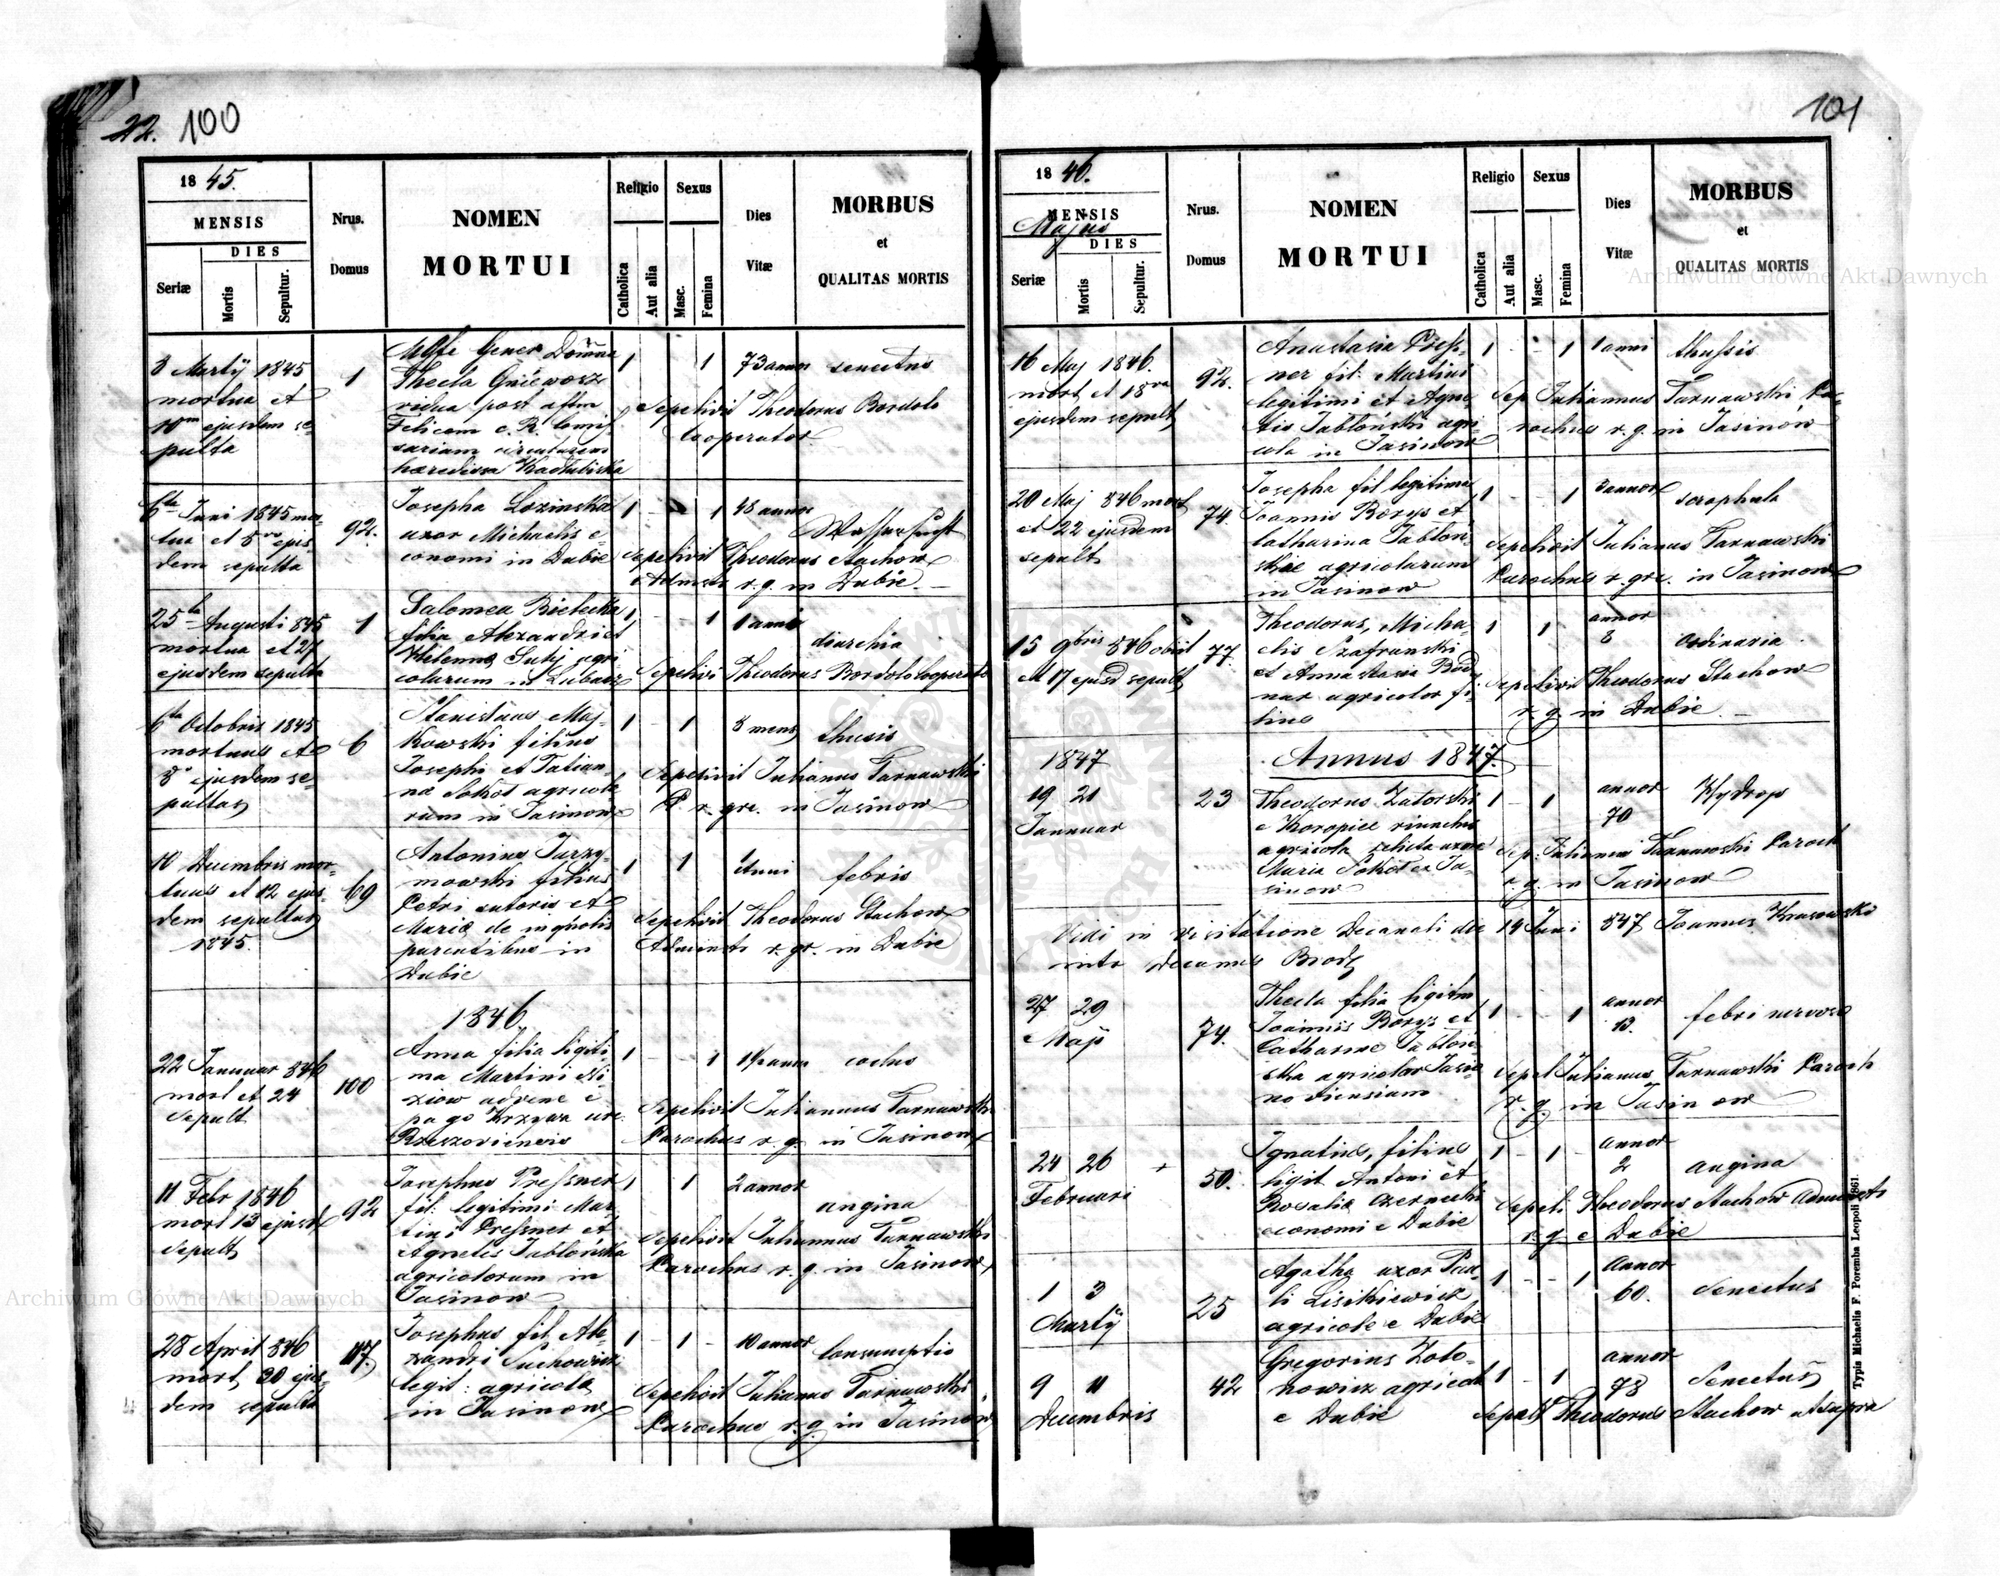 22. 100
1845.
MENSIS
DIES
Seriæ
Mortis
Sepultur.
Nrus.
Domus
NOMEN
MORTUI
Religio
Catholica
Aut alia
Sexus
Masc.
Femina
Dies
Vitæ
MORBUS
et
QUALITAS MORTIS
8 Martÿ 1845
mortua et
10ma ejusdem se-
pulta
1
Gener Domina
Thecla Gniewosz
vidua post
Felicem c. R.
haeredissa
1 1 73 annor senectus
Sepelivit Theodorus Bordolo
Cooperator
6ta Juni 1845 mor-
tua et 8va ejus-
dem sepulta
92.
Josepha Lozinska
uxor Michaelis e-
conomi in Dubie
1 1 48 annor
Wassersucht
Sepelivit Theodorus Stachow
r. g. in Dubie
25ta Augusti 845
mortua et 27
ejusdem sepulta
1
Salomea Bielecka
filia Alexandri et
Helenna agri-
colarum in
1 1 1 anni
diarehia
Sepelivi Theodorus Bordolo Cooperator
6ta Octobris 1845
mortuus et
8a ejusdem se-
pultus
6
Stanislaus Maj-
kowski filius
Josephi et Tatian-
na Sokol agricola
rum in Jasinow
1 - 1 8 mens thusis
Sepelivit Julianus Tarnawski
P. r. gre. in Jasinow
10 Decembris mor-
tuus et 12 ejus-
dem sepultus
1845.
69
Antonius
mowski filius
Petri sutoris et
Maria de ingnotis
parentibus in
Dubie
1 1 1 anni febris
Sepelivit Theodorus Stachow
r. gr. in Dubie
1846.
22 Januar 846
mort et 24
Sepult
100
Anna filia legiti-
ma Martini
advene e
pago
Rzeszoviensis
1 - - 1
Sepelivit Julianus Tarnawski
Parochus r. g. in Jasinow
11 Febr 1846
mort 13 ejusd
Sepult
92
Josephus Pressner
fil: legitimi Mar-
tini Pressner et
Agnetis Jablońska
agricolorum in
Jasinow
1 1 2 annor
angina
Sepelivit Julianus Tarnawski
Parochus r. g. in Jasinow
28 April 846
mort, 30 ejus-
dem sepulta
117.
Josephus fil. Ale-
xandri Suchowicz
legit: agricola
in Jasinow
1 - 1 - 10 annor Consumptio
Sepelivit Julianus Tarnawski
Parochus r. g. in Jasinow
101
1846.
MENSIS
Majus
DIES
Seriæ
Mortis
Sepultur.
Nrus.
Domus
NOMEN
MORTUI
Religio
Catholica
Aut alia
Sexus
Masc.
Femina
Dies
Vitæ
MORBUS
et
QUALITAS MORTIS
16 Maj 1846.
mort et 18va
ejusdem sepult
92.
Anastasia Press-
ner fil: Martini
legitimi et Agne-
tis Jabłoński agri-
cola in Jasinow
1 - - 1 1 anni thussis
Sep Julianus Tarnawski Pa-
rochus r. g. in Jasinow
20 Maj 846 mort
et 22 ejusdem
sepult
74.
Josepha fil legitima
Joannis Borys et
Catharina Jablon-
skie agricolarum
in Jasinow
1 - - 1 3 annor scrophula
Sepelivit Julianus Tarnawski
Parochus r. gre. in Jasinow
15 9bris 846 obiit
et 17 ejusd sepult
77.
Theodorus, Micha-
elis Szafranski
et Annastasia Bod-
nar agricolor fi-
lius
1 1 annor
8 Ordinaria
Sepelivit Theodorus Stachow
r. g. in Dubie
1847
Annus 1847.
19 21
Januar
23
Theodorus Zatorski
e Koropiec
agricola relicta uxore
Maria Sokol ex Ja-
sinow
1 - 1 annor
70 Hydrops
Sep: Julianus Tarnawski Paroch
r. g. in Jasinow
Vidi in visitatione Decanali die 14 Juni 847 Joannes Krasowski
Decanus Brody
27 29
Maji
74.
Thecla filia legitm
Joannis Borys et
Catharine Jablon-
ska agricolar Jasi-
noviensium
1 - - 1 annor
13. febri nervosa
Sepel Julianus Tarnawski Paroch
r. g. in Jasinow
24 26 +
Februari
50.
Ignatius, filius
legit Antoni et
Rosalia Czernecki
economi e Dubie
1 - 1 - annor
2 angina
Sepeli Theodorus Stachow
r. g. e Dubie
1 3
Martÿ
25
Agatha uxor Pau-
li Lisikiewicz
agricole e Dubie
1 - - 1 annor
60. Senectus
9 11
Decembris
42
Gregorius Zolo-
nowicz agricol
e Dubie
1 - 1 annor
78 Senectus
Sepelt Theodorus Stachow ut supra
Typis Michaelis F. Poremba Leopoli 1861.
Archiwum Główne Akt Dawnych
Archiwum Główne Akt Dawnych